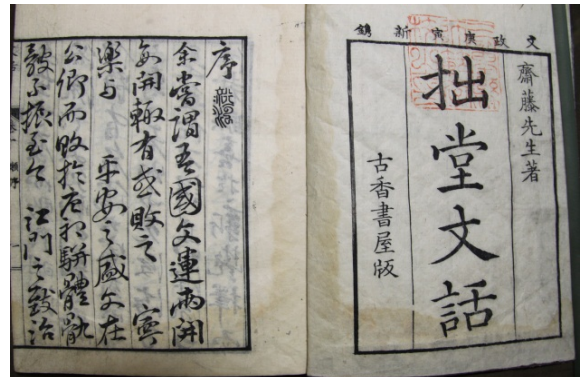 文政庚寅新鐫
齋藤先生著
拙堂文話
古香書屋版
序
余嘗謂吾國文運兩開
每開輒有或敗之 寧
樂与 平安之盛文在
公卿而敗於駢體骫
骳不振至今 江門之致治